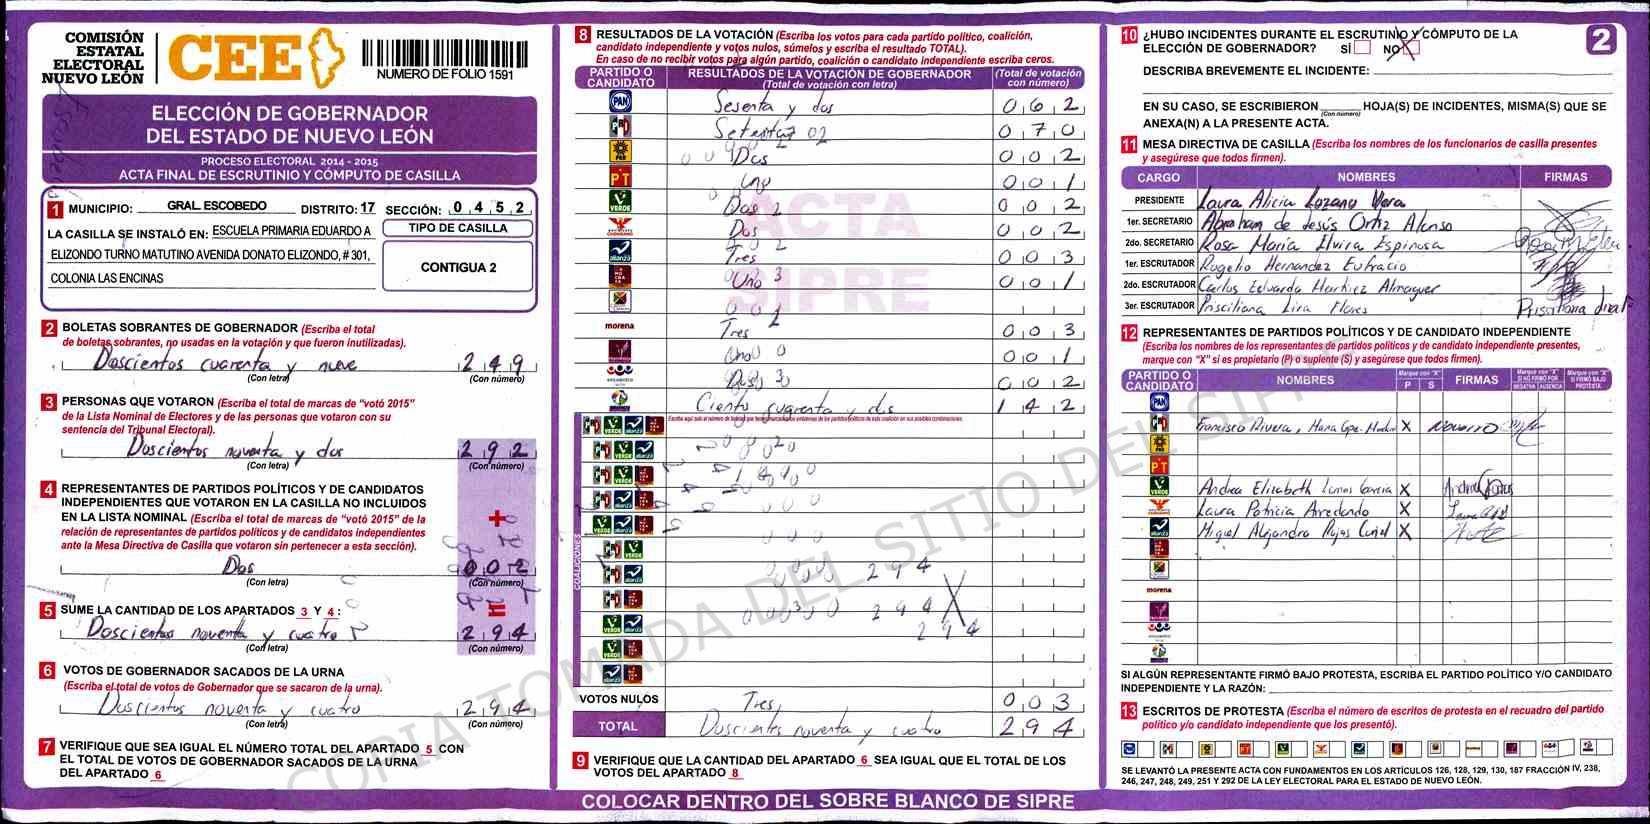 COMISIÓN
ESTATAL
ELECTORAL
NUEVO LEÓN
CEE
NUMERO DE FOLIO 1591
ELECCIÓN DE GOBERNADOR
DEL ESTADO DE NUEVO LEÓN
PROCESO ELECTORAL 2014 - 2015
ACTA FINAL DE ESCRUTINIO Y CÓMPUTO DE CASILLA
1 MUNICIPIO: GRAL. ESCOBEDO DISTRITO: 17 SECCIÓN: 0 4 5 2
LA CASILLA SE INSTALÓ EN: ESCUELA PRIMARIA EDUARDO A
ELIZONDO TURNO MATUTINO AVENIDA DONATO ELIZONDO, # 301,
COLONIA LAS ENCINAS
TIPO DE CASILLA
CONTIGUA 2
2 BOLETAS SOBRANTES DE GOBERNADOR (Escriba el total
de boletas sobrantes, no usadas en la votación y que fueron inutilizadas).
Doscientos cuarenta y nueve 2 4 9
(Con letra) (Con número)
3 PERSONAS QUE VOTARON (Escriba el total de marcas de “votó 2015”
de la Lista Nominal de Electores y de las personas que votaron con su
sentencia del Tribunal Electoral).
Doscientos noventa y dos 2 9 2
(Con letra) (Con número)
4 REPRESENTANTES DE PARTIDOS POLÍTICOS Y DE CANDIDATOS
INDEPENDIENTES QUE VOTARON EN LA CASILLA NO INCLUIDOS
EN LA LISTA NOMINAL (Escriba el total de marcas de “votó 2015” de la
relación de representantes de partidos políticos y de candidatos independientes
ante la Mesa Directiva de Casilla que votaron sin pertenecer a esta sección).
+
Dos 0 0 2
(Con letra) (Con número)
=
5 SUME LA CANTIDAD DE LOS APARTADOS 3 Y 4 :
Doscientos noventa y cuatro 2 9 4
(Con letra) (Con número)
6 VOTOS DE GOBERNADOR SACADOS DE LA URNA
(Escriba el total de votos de Gobernador que se sacaron de la urna).
Doscientos noventa y cuatro 2 9 4
(Con letra) (Con número)
7 VERIFIQUE QUE SEA IGUAL EL NÚMERO TOTAL DEL APARTADO 5 CON
EL TOTAL DE VOTOS DE GOBERNADOR SACADOS DE LA URNA
DEL APARTADO 6
8 RESULTADOS DE LA VOTACIÓN (Escriba los votos para cada partido político, coalición,
candidato independiente y votos nulos, súmelos y escriba el resultado TOTAL).
En caso de no recibir votos para algún partido, coalición o candidato independiente escriba ceros.
PARTIDO O
CANDIDATO
RESULTADOS DE LA VOTACIÓN DE GOBERNADOR
(Total de votación con letra)
(Total de votación
con número)
PAN Sesenta y dos 0 6 2
PRI Setenta 0 7 0
PRD Dos 0 0 2
PT Uno 0 0 1
VERDE Dos 0 0 2
Dos 0 0 2
alianza Tres 0 0 3
Uno 0 0 1
morena Tres 0 0 3
Uno 0 0 1
encuentro Dos 0 0 2
Ciento cuarenta y dos 1 4 2
COALICIONES
2 9 4
2 9 4
2 9 4
VOTOS NULOS Tres 0 0 3
TOTAL Doscientos noventa y cuatro 2 9 4
9 VERIFIQUE QUE LA CANTIDAD DEL APARTADO 6 SEA IGUAL QUE EL TOTAL DE LOS
VOTOS DEL APARTADO 8
COLOCAR DENTRO DEL SOBRE BLANCO DE SIPRE
ACTA
SIPRE
COPIA TOMADA DEL SITIO DEL SIPRE
2
10 ¿HUBO INCIDENTES DURANTE EL ESCRUTINIO Y CÓMPUTO DE LA
ELECCIÓN DE GOBERNADOR? SÍ NO X
DESCRIBA BREVEMENTE EL INCIDENTE:
EN SU CASO, SE ESCRIBIERON HOJA(S) DE INCIDENTES, MISMA(S) QUE SE
(Con número)
ANEXA(N) A LA PRESENTE ACTA.
11 MESA DIRECTIVA DE CASILLA (Escriba los nombres de los funcionarios de casilla presentes
y asegúrese que todos firmen).
CARGO NOMBRES FIRMAS
PRESIDENTE Laura Alicia Lozano Vera
1er. SECRETARIO Abraham de Jesús Ortiz Alonso
2do. SECRETARIO Rosa Maria Elvira Espinosa
1er. ESCRUTADOR Rogelio Hernandez Eufracio
2do. ESCRUTADOR Carlos Eduardo Almaguer
3er. ESCRUTADOR Prisciliana Lira Flores
12 REPRESENTANTES DE PARTIDOS POLÍTICOS Y DE CANDIDATO INDEPENDIENTE
(Escriba los nombres de los representantes de partidos políticos y de candidato independiente presentes,
marque con “X” si es propietario (P) o suplente (S) y asegúrese que todos firmen).
PARTIDO O
CANDIDATO
NOMBRES
Marque con “X”
P S
FIRMAS
Marque con “X”
SI NO FIRMÓ POR
NEGATIVA AUSENCIA
Marque con “X”
SI FIRMÓ BAJO
PROTESTA
PAN
PRI Francisco Rivera, Maria Gpe. X Navarro
PRD
PT
VERDE Andrea Elizabeth Garcia X
Laura Patricia Arredondo X
alianza Miguel Alejandro Rojas X
morena
encuentro
SI ALGÚN REPRESENTANTE FIRMÓ BAJO PROTESTA, ESCRIBA EL PARTIDO POLÍTICO Y/O CANDIDATO
INDEPENDIENTE Y LA RAZÓN:
13 ESCRITOS DE PROTESTA (Escriba el número de escritos de protesta en el recuadro del partido
político y/o candidato independiente que los presentó).
SE LEVANTÓ LA PRESENTE ACTA CON FUNDAMENTOS EN LOS ARTÍCULOS 126, 128, 129, 130, 187 FRACCIÓN IV, 238,
246, 247, 248, 249, 251 Y 292 DE LA LEY ELECTORAL PARA EL ESTADO DE NUEVO LEÓN.